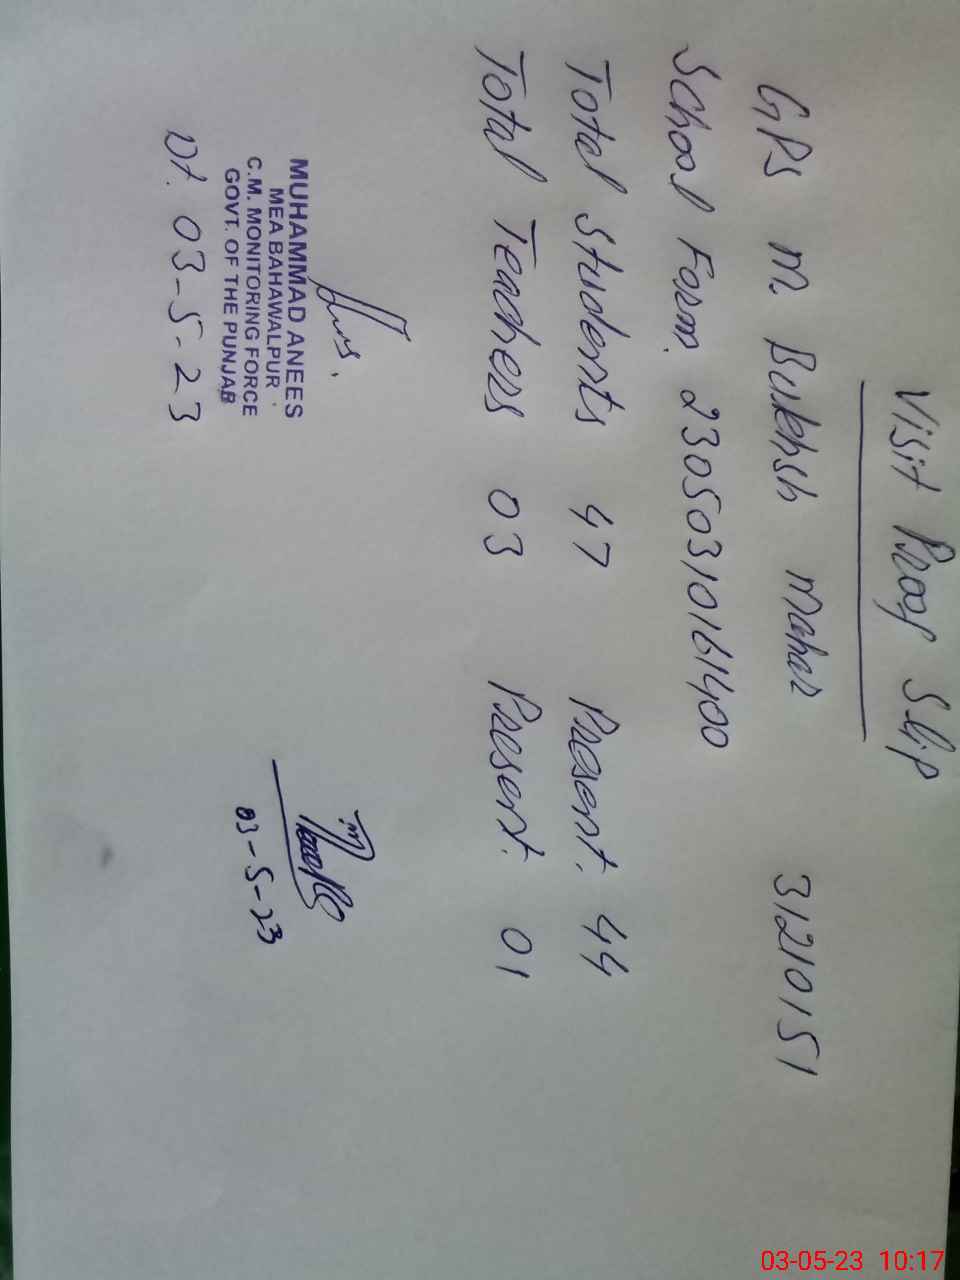 Visit Proof Slip
GPS M Bukhsh Mahar 31210151
School Form 23050310161400
Total Students 47 Present. 44
Total Teachers 03 Present. 01
MUHAMMAD ANEES
MEA BAHAWALPUR
C.M. MONITORING FORCE
GOVT. OF THE PUNJAB
Dt. 03-5-23
03-5-23
03-05-23 10:17